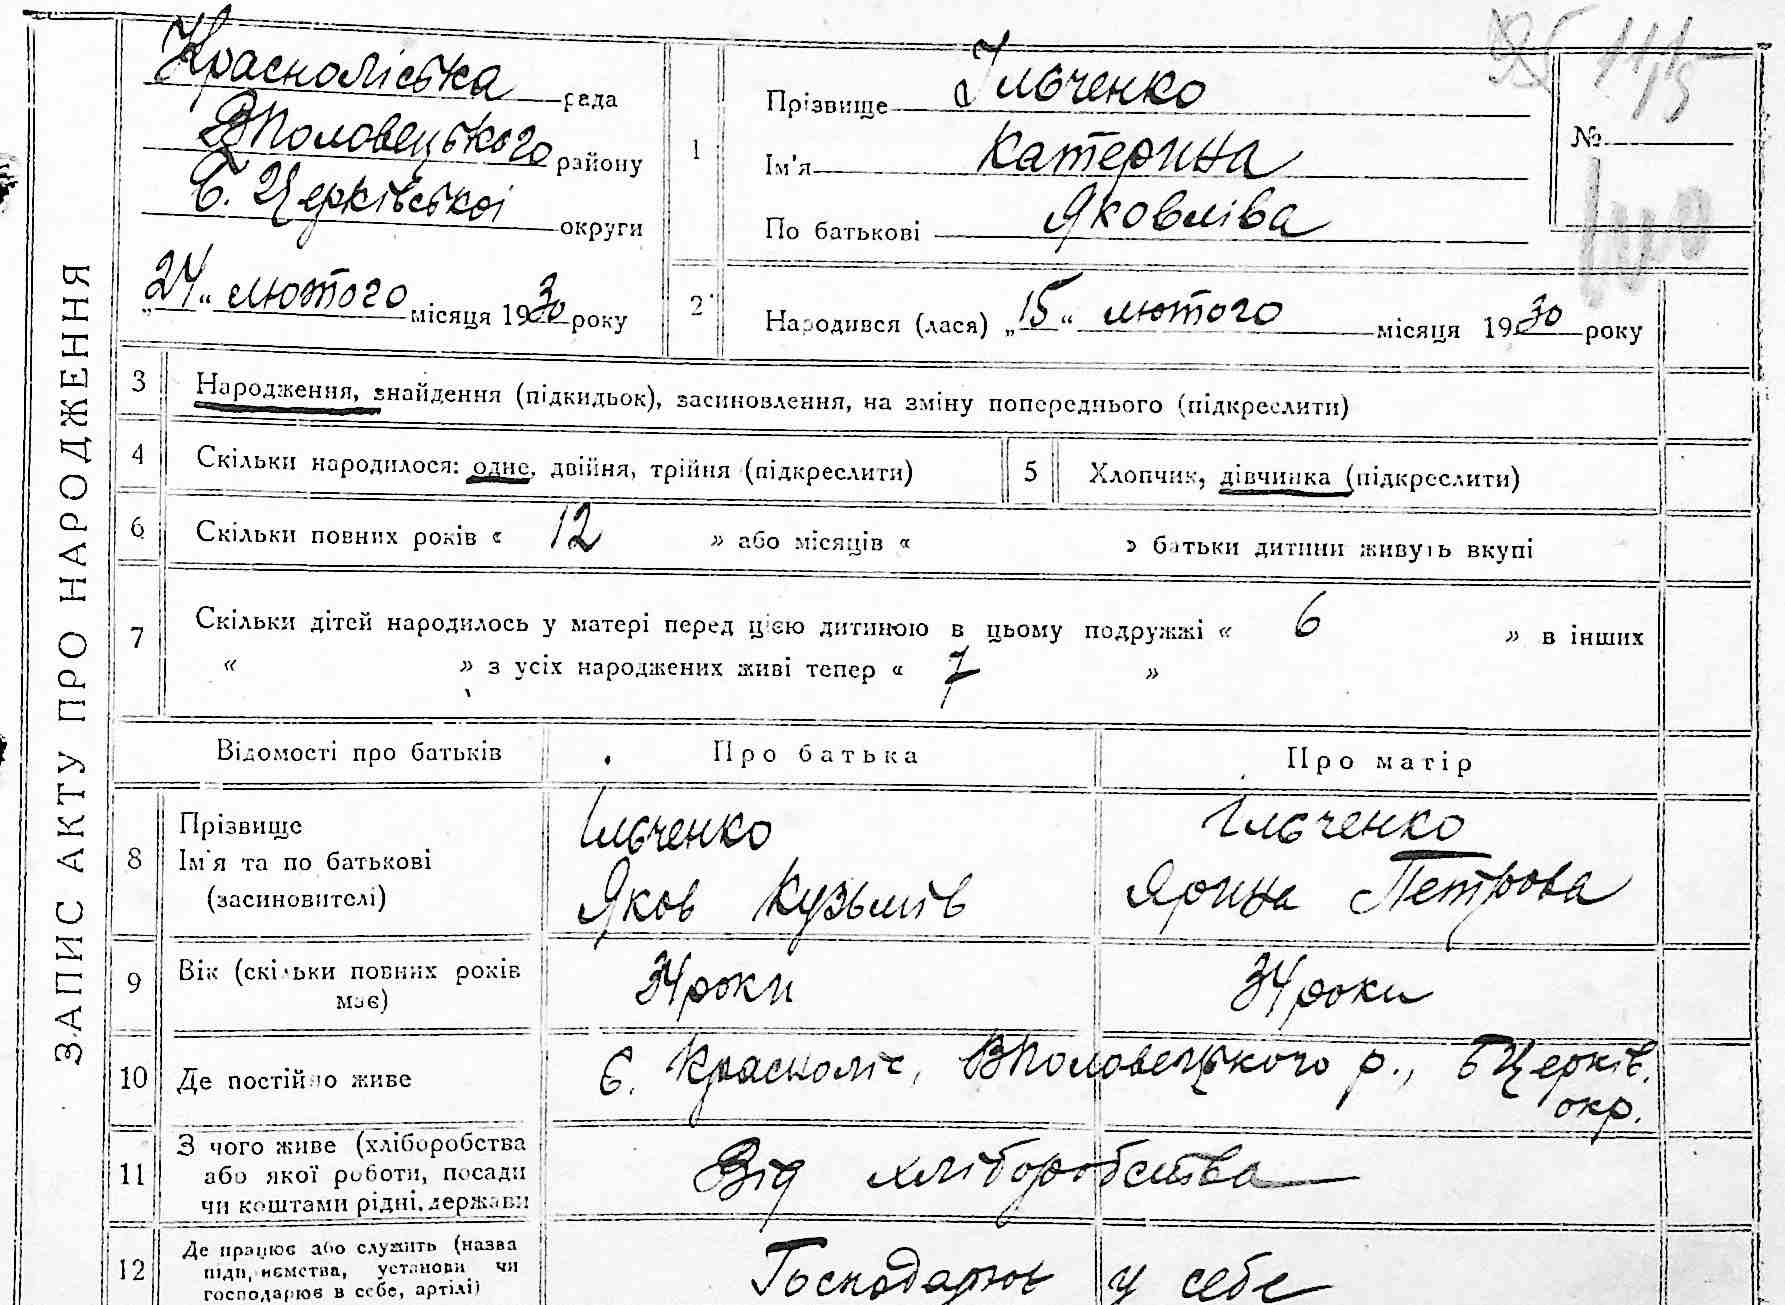 ЗАПИС АКТУ ПРО НАРОДЖЕННЯ
Красноліська рада
ВПоловецького району
Б. Церківської округи
„24“ лютого місяця 1930 року
1
Прізвище Ільченко
Ім'я Катерина
По батькові Яковліва
№
2
Народився (лася) „15“ лютого місяця 1930 року
3 Народження, знайдення (підкидьок), засиновлення, на зміну попереднього (підкреслити)
4 Скільки народилося: одне, двійня, трійня (підкреслити)
5 Хлопчик, дівчинка (підкреслити)
6 Скільки повних років « 12 » або місяців « » батьки дитини живуть вкупі
7 Скільки дітей народилось у матері перед цією дитиною в цьому подружжі « 6 » в інших
« » з усіх народжених живі тепер « 7 »
Відомості про батьків Про батька Про матір
8 Прізвище
Ім'я та по батькові
(засиновителі)
Ільченко
Яков Кузьмів
Ільченко
Ярина Петрова
9 Вік (скільки повних років
має)
34 роки
34 роки
10 Де постійно живе
с. Красноліс, ВПоловецького р., БЦерків.
окр.
11 З чого живе (хліборобства
або якої роботи, посади
чи коштами рідні, держави
Від хліборобства
12 Де працює або служить (назва
підприємства, установи чи
господарює в себе, артілі)
Господарює у себе